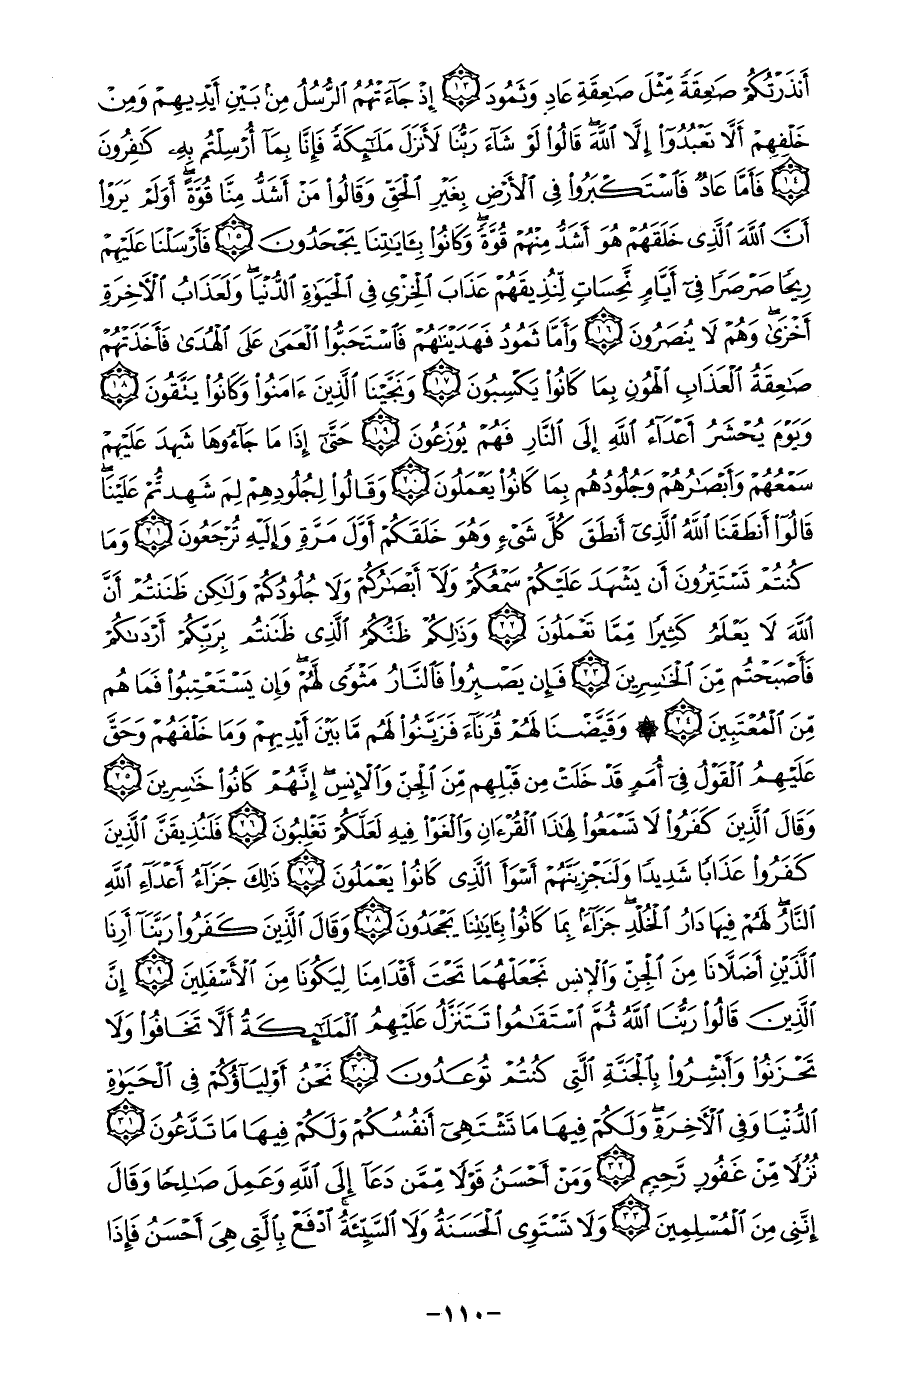 أَنذَرْتُكُمْ صَـٰعِقَةً مِّثْلَ صَـٰعِقَةِ عَادٍ وَثَمُودَ ١٣ إِذْ جَآءَتْهُمُ ٱلرُّسُلُ مِنۢ بَيْنِ أَيْدِيهِمْ وَمِنْ
خَلْفِهِمْ أَلَّا تَعْبُدُوٓا۟ إِلَّا ٱللَّهَ ۖ قَالُوا۟ لَوْ شَآءَ رَبُّنَا لَأَنزَلَ مَلَـٰٓئِكَةً فَإِنَّا بِمَآ أُرْسِلْتُم بِهِۦ كَـٰفِرُونَ
١٤ فَأَمَّا عَادٌ فَٱسْتَكْبَرُوا۟ فِى ٱلْأَرْضِ بِغَيْرِ ٱلْحَقِّ وَقَالُوا۟ مَنْ أَشَدُّ مِنَّا قُوَّةً ۖ أَوَلَمْ يَرَوْا۟
أَنَّ ٱللَّهَ ٱلَّذِى خَلَقَهُمْ هُوَ أَشَدُّ مِنْهُمْ قُوَّةً ۖ وَكَانُوا۟ بِـَٔايَـٰتِنَا يَجْحَدُونَ ١٥ فَأَرْسَلْنَا عَلَيْهِمْ
رِيحًا صَرْصَرًا فِىٓ أَيَّامٍ نَّحِسَاتٍ لِّنُذِيقَهُمْ عَذَابَ ٱلْخِزْىِ فِى ٱلْحَيَوٰةِ ٱلدُّنْيَا ۖ وَلَعَذَابُ ٱلْـَٔاخِرَةِ
أَخْزَىٰ ۖ وَهُمْ لَا يُنصَرُونَ ١٦ وَأَمَّا ثَمُودُ فَهَدَيْنَـٰهُمْ فَٱسْتَحَبُّوا۟ ٱلْعَمَىٰ عَلَى ٱلْهُدَىٰ فَأَخَذَتْهُمْ
صَـٰعِقَةُ ٱلْعَذَابِ ٱلْهُونِ بِمَا كَانُوا۟ يَكْسِبُونَ ١٧ وَنَجَّيْنَا ٱلَّذِينَ ءَامَنُوا۟ وَكَانُوا۟ يَتَّقُونَ ١٨
وَيَوْمَ يُحْشَرُ أَعْدَآءُ ٱللَّهِ إِلَى ٱلنَّارِ فَهُمْ يُوزَعُونَ ١٩ حَتَّىٰٓ إِذَا مَا جَآءُوهَا شَهِدَ عَلَيْهِمْ
سَمْعُهُمْ وَأَبْصَـٰرُهُمْ وَجُلُودُهُم بِمَا كَانُوا۟ يَعْمَلُونَ ٢٠ وَقَالُوا۟ لِجُلُودِهِمْ لِمَ شَهِدتُّمْ عَلَيْنَا ۖ
قَالُوٓا۟ أَنطَقَنَا ٱللَّهُ ٱلَّذِىٓ أَنطَقَ كُلَّ شَىْءٍ وَهُوَ خَلَقَكُمْ أَوَّلَ مَرَّةٍ وَإِلَيْهِ تُرْجَعُونَ ٢١ وَمَا
كُنتُمْ تَسْتَتِرُونَ أَن يَشْهَدَ عَلَيْكُمْ سَمْعُكُمْ وَلَآ أَبْصَـٰرُكُمْ وَلَا جُلُودُكُمْ وَلَـٰكِن ظَنَنتُمْ أَنَّ
ٱللَّهَ لَا يَعْلَمُ كَثِيرًا مِّمَّا تَعْمَلُونَ ٢٢ وَذَٰلِكُمْ ظَنُّكُمُ ٱلَّذِى ظَنَنتُم بِرَبِّكُمْ أَرْدَىٰكُمْ
فَأَصْبَحْتُم مِّنَ ٱلْخَـٰسِرِينَ ٢٣ فَإِن يَصْبِرُوا۟ فَٱلنَّارُ مَثْوًى لَّهُمْ ۖ وَإِن يَسْتَعْتِبُوا۟ فَمَا هُم
مِّنَ ٱلْمُعْتَبِينَ ٢٤ ۞ وَقَيَّضْنَا لَهُمْ قُرَنَآءَ فَزَيَّنُوا۟ لَهُم مَّا بَيْنَ أَيْدِيهِمْ وَمَا خَلْفَهُمْ وَحَقَّ
عَلَيْهِمُ ٱلْقَوْلُ فِىٓ أُمَمٍ قَدْ خَلَتْ مِن قَبْلِهِم مِّنَ ٱلْجِنِّ وَٱلْإِنسِ ۖ إِنَّهُمْ كَانُوا۟ خَـٰسِرِينَ ٢٥
وَقَالَ ٱلَّذِينَ كَفَرُوا۟ لَا تَسْمَعُوا۟ لِهَـٰذَا ٱلْقُرْءَانِ وَٱلْغَوْا۟ فِيهِ لَعَلَّكُمْ تَغْلِبُونَ ٢٦ فَلَنُذِيقَنَّ ٱلَّذِينَ
كَفَرُوا۟ عَذَابًا شَدِيدًا وَلَنَجْزِيَنَّهُمْ أَسْوَأَ ٱلَّذِى كَانُوا۟ يَعْمَلُونَ ٢٧ ذَٰلِكَ جَزَآءُ أَعْدَآءِ ٱللَّهِ
ٱلنَّارُ ۖ لَهُمْ فِيهَا دَارُ ٱلْخُلْدِ ۖ جَزَآءًۢ بِمَا كَانُوا۟ بِـَٔايَـٰتِنَا يَجْحَدُونَ ٢٨ وَقَالَ ٱلَّذِينَ كَفَرُوا۟ رَبَّنَآ أَرِنَا
ٱلَّذَيْنِ أَضَلَّانَا مِنَ ٱلْجِنِّ وَٱلْإِنسِ نَجْعَلْهُمَا تَحْتَ أَقْدَامِنَا لِيَكُونَا مِنَ ٱلْأَسْفَلِينَ ٢٩ إِنَّ
ٱلَّذِينَ قَالُوا۟ رَبُّنَا ٱللَّهُ ثُمَّ ٱسْتَقَـٰمُوا۟ تَتَنَزَّلُ عَلَيْهِمُ ٱلْمَلَـٰٓئِكَةُ أَلَّا تَخَافُوا۟ وَلَا
تَحْزَنُوا۟ وَأَبْشِرُوا۟ بِٱلْجَنَّةِ ٱلَّتِى كُنتُمْ تُوعَدُونَ ٣٠ نَحْنُ أَوْلِيَآؤُكُمْ فِى ٱلْحَيَوٰةِ
ٱلدُّنْيَا وَفِى ٱلْـَٔاخِرَةِ ۖ وَلَكُمْ فِيهَا مَا تَشْتَهِىٓ أَنفُسُكُمْ وَلَكُمْ فِيهَا مَا تَدَّعُونَ ٣١
نُزُلًا مِّنْ غَفُورٍ رَّحِيمٍ ٣٢ وَمَنْ أَحْسَنُ قَوْلًا مِّمَّن دَعَآ إِلَى ٱللَّهِ وَعَمِلَ صَـٰلِحًا وَقَالَ
إِنَّنِى مِنَ ٱلْمُسْلِمِينَ ٣٣ وَلَا تَسْتَوِى ٱلْحَسَنَةُ وَلَا ٱلسَّيِّئَةُ ۚ ٱدْفَعْ بِٱلَّتِى هِىَ أَحْسَنُ فَإِذَا
-١١٠-